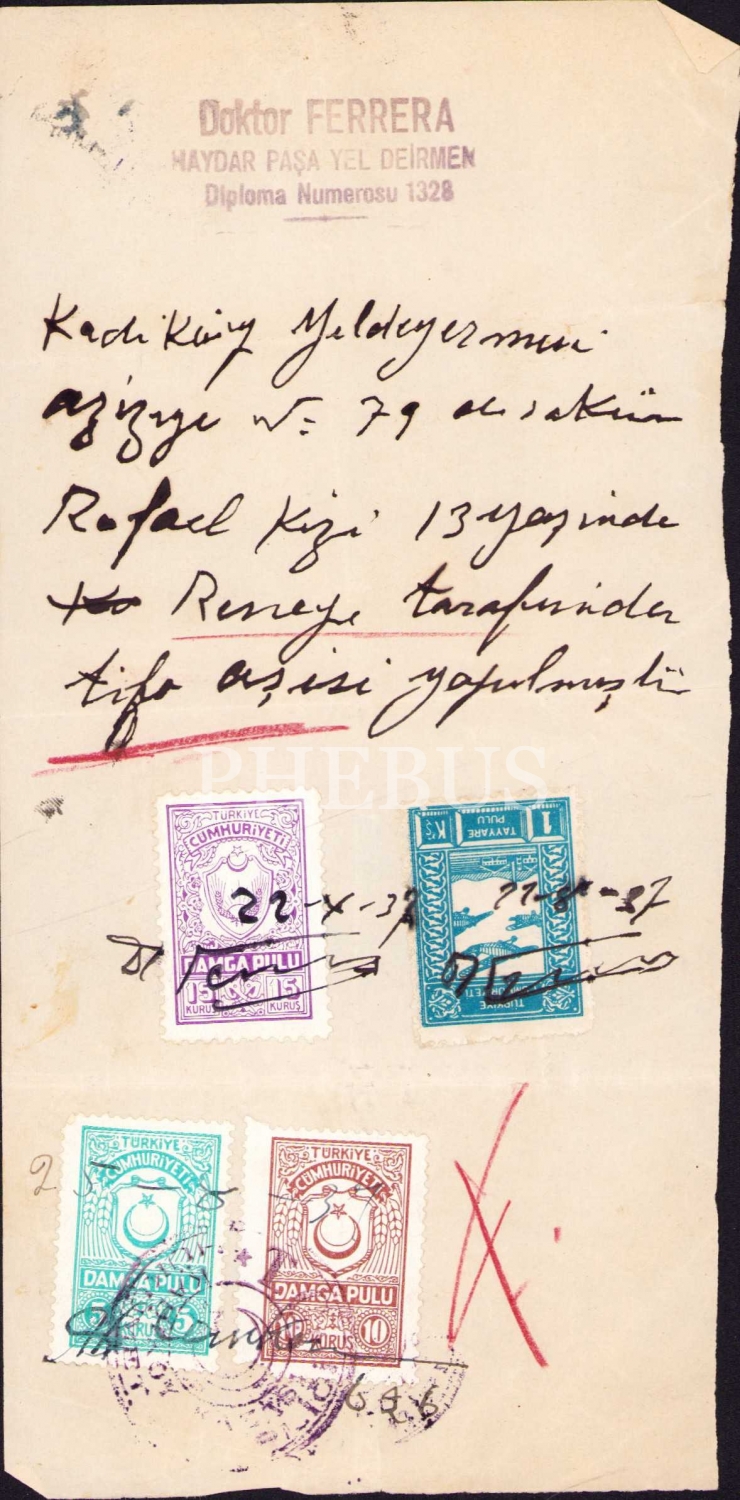 Doktor FERRERA
HAYDAR PAŞA YEL DEİRMEN
Diploma Numerosu 1328
Kadi Köÿ Yeldeyermeni
aziziye N= 79 da sakin
Rafael Kizi 13 yaşinde
Reneye tarafımdan
tifo aşisi yapılmıştır
PHEBUS
TÜRKİYE
CUMHURİYETİ
22-X-37
DAMGA PULU
15 15
KURUŞ KURUŞ
1 Kş
TAYYARE
PULU
TÜRKİYE
CUMHURİYETİ
37
Dr
TÜRKİYE
CUMHURİYETİ
DAMGA PULU
5 5
KURUŞ
TÜRKİYE
CUMHURİYETİ
DAMGA PULU
10
KURUŞ
25